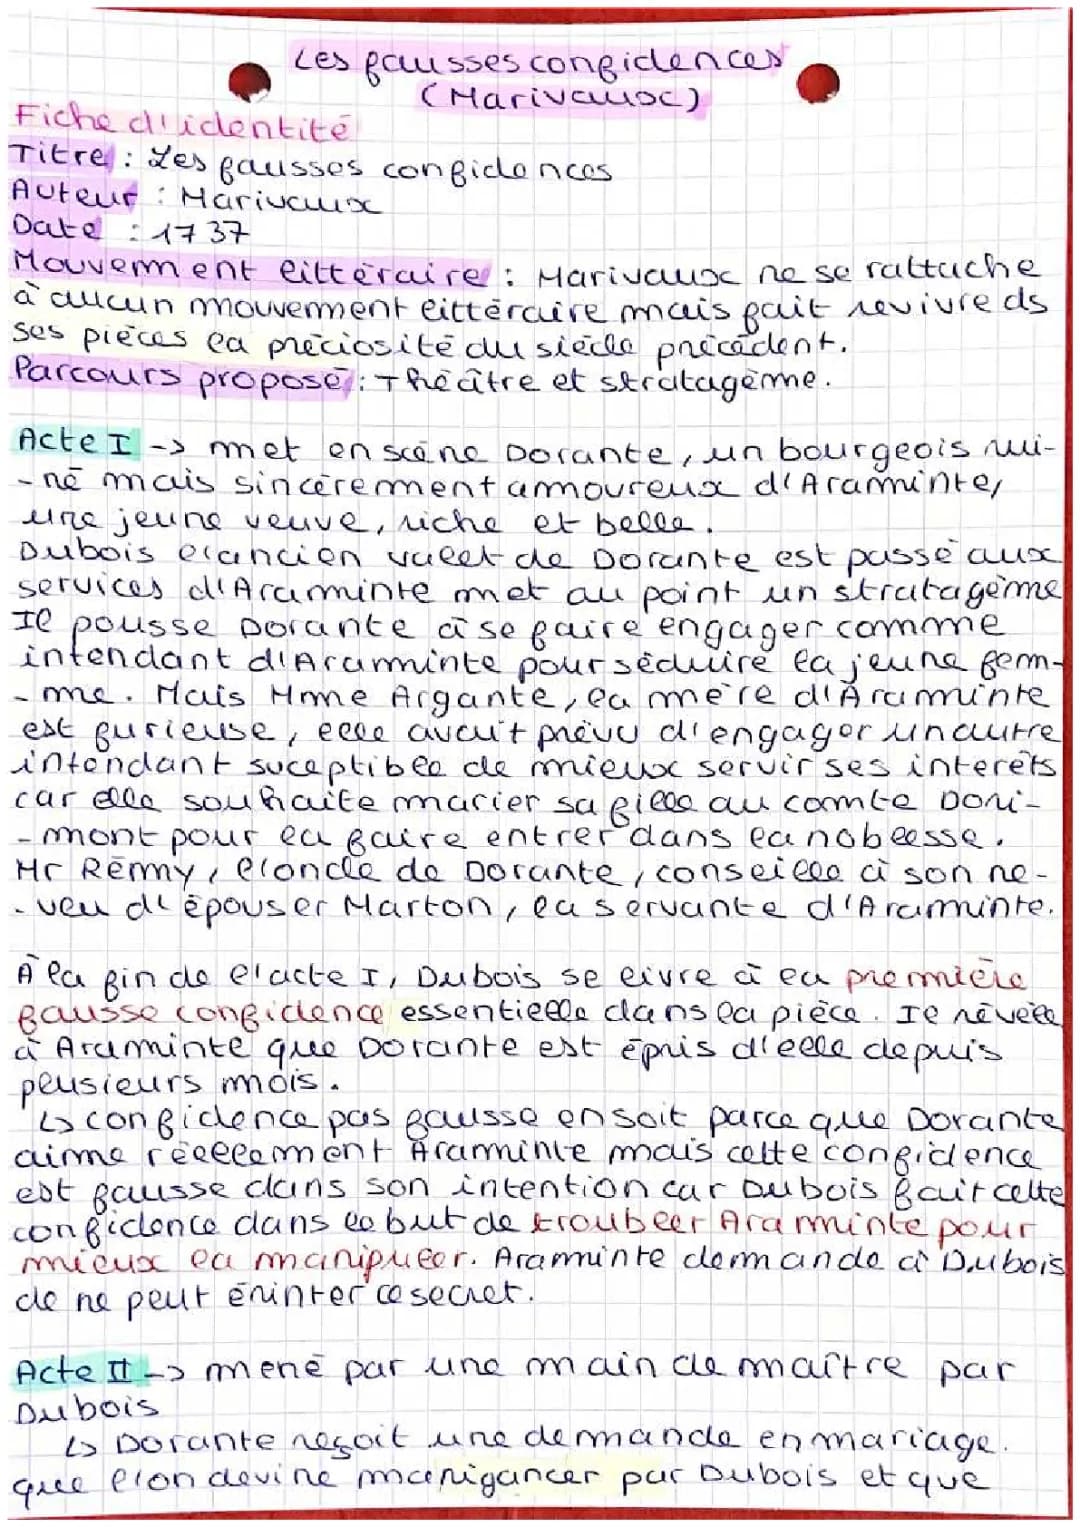 Les fausses confidences
(Marivaux)
Fiche d'identité
Titre : Les fausses confidences
Auteur : Marivaux
Date : 1737
Mouvement littéraire : Marivaux ne se rattache
à aucun mouvement littéraire mais fait revivre ds
ses pièces la préciosité du siècle précédent.
Parcours proposé : Théâtre et stratagème.
Acte I -> met en scène Dorante, un bourgeois rui-
-né mais sincèrement amoureux d'Araminte,
une jeune veuve, riche et belle.
Dubois l'ancien valet de Dorante est passé aux
services d'Araminte met au point un stratagème
Il pousse Dorante à se faire engager comme
intendant d'Araminte pour séduire la jeune fem-
-me. Mais Mme Argante, la mère d'Araminte
est furieuse, elle avait prévu d'engager un autre
intendant suceptible de mieux servir ses interêts
car elle souhaite marier sa fille au comte Dori-
-mont pour la faire entrer dans la noblesse.
Mr Rémy, l'oncle de Dorante, conseille à son ne-
-veu d'épouser Marton, la servante d'Araminte.
À la fin de l'acte I, Dubois se livre à la première
fausse confidence essentielle dans la pièce. Il révèle
à Araminte que Dorante est épris d'elle depuis
plusieurs mois.
↳ confidence pas fausse en soit parce que Dorante
aime réellement Araminte mais cette confidence
est fausse dans son intention car Dubois fait cette
confidence dans le but de troubler Araminte pour
mieux la manipuler. Araminte demande à Dubois
de ne peut éninter ce secret.
Acte II -> mené par une main de maître par
Dubois
↳ Dorante reçoit une demande en mariage.
que l'on devine manigancer par Dubois et que